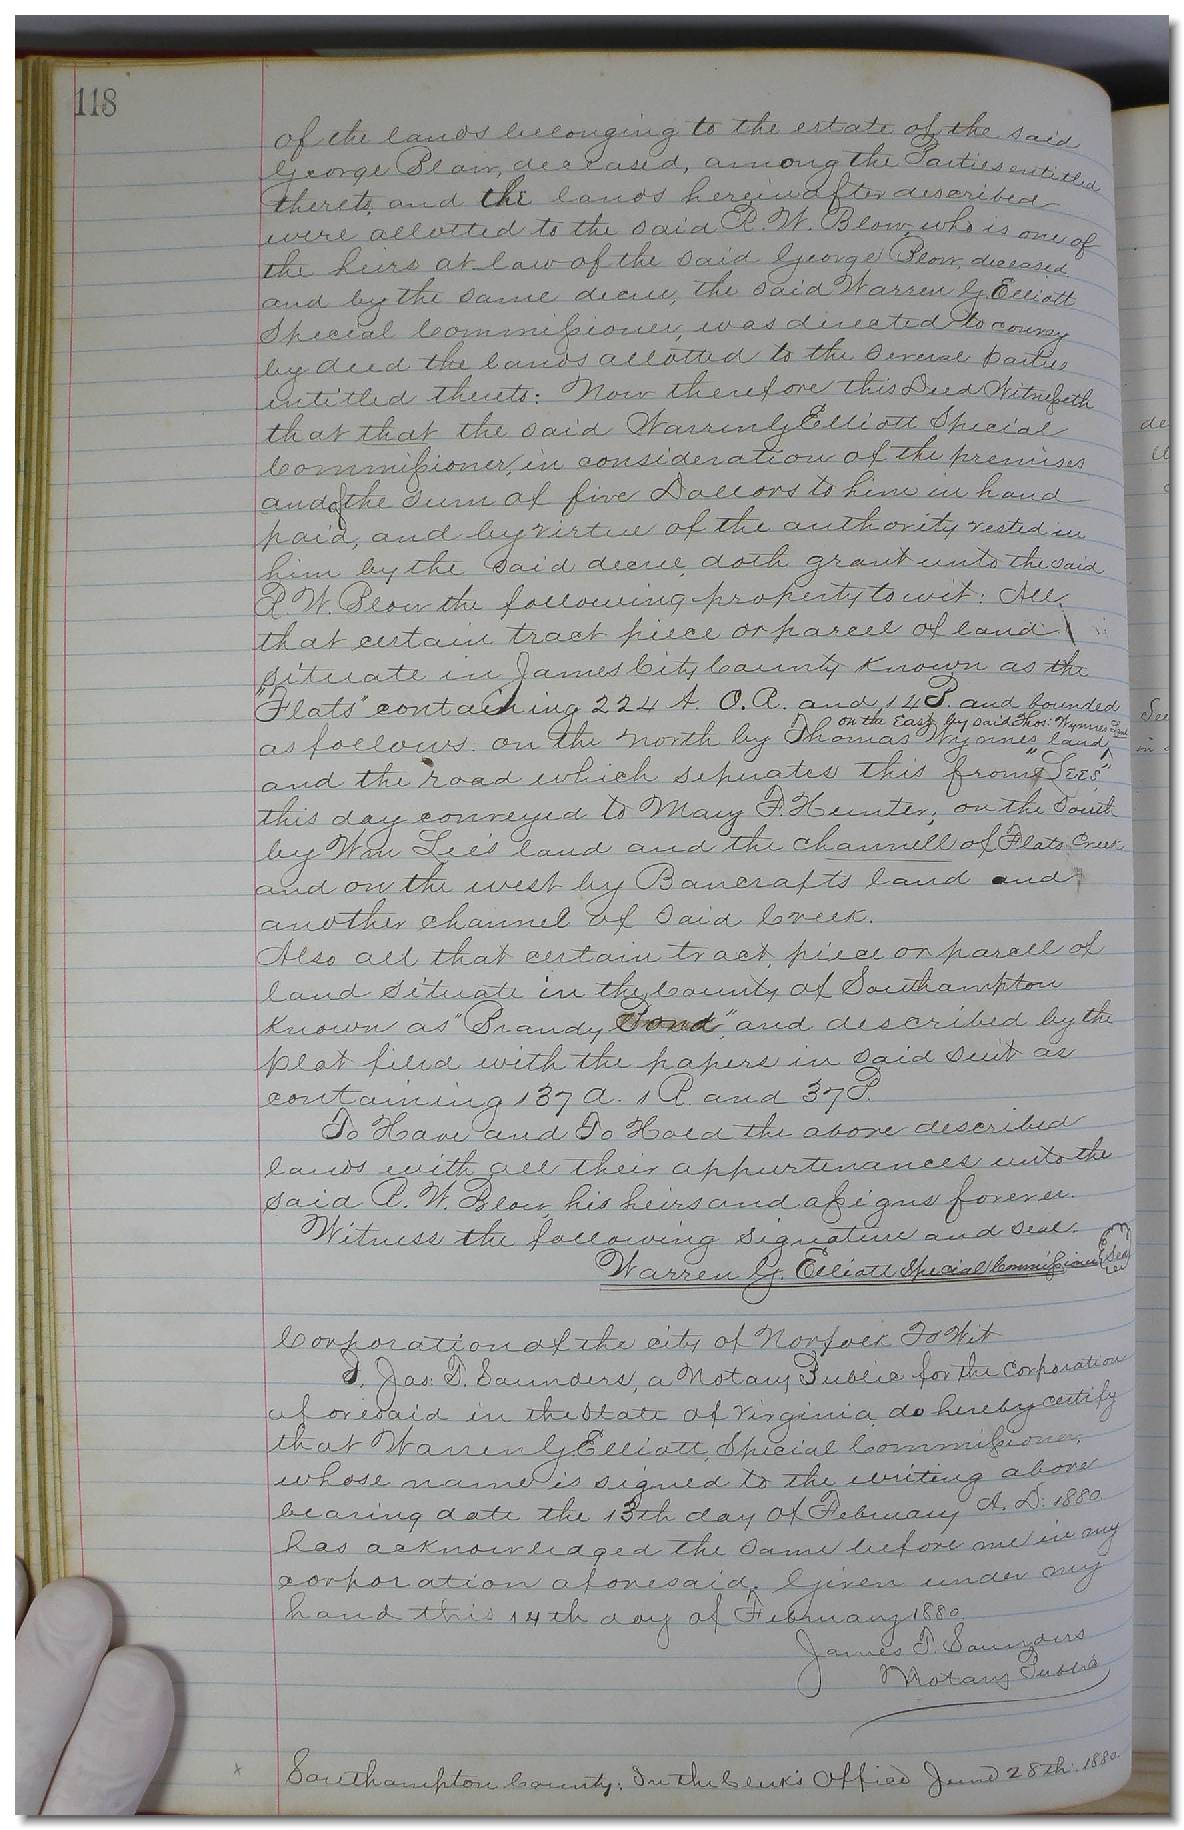 118
of the lands belonging to the estate of the said
George Blow, deceased, among the Parties entitled
thereto, and the lands hereinafter described
were allotted to the said R. W. Blow, who is one of
the heirs at law of the said George Blow, deceased
and by the same decree, the said Warren G. Elliott
Special Commissioner, was directed to convey
by deed the lands allotted to the several parties
entitled thereto: Now therefore this Deed Witnesseth
that that the said Warren G Elliott Special
Commissioner, in consideration of the premises
and of the sum of five Dollars to him in hand
paid, and by virtue of the authority vested in
him by the said decree, doth grant unto the said
R. W. Blow the following property to wit: All
that certain tract piece or parcel of land
situate in James City County known as the
"Flats" containing 224 A. O. R. and 14 P. and bounded
on the East by said Thos. Wynnes land
as follows. on the north by Thomas Wynnes land
and the road which seperates this from "Lees"
this day conveyed to Mary F. Hunter, on the South
by Wm Lee's land and the channell of Flats Creek
and on the west by Bancrafts land and
another channel of said Creek.
Also all that certain tract, piece or parcell of
land situate in the County of Southampton
known as "Brandy Pond", and described by the
plat filed with the papers in said suit as
containing 137 A. 1 R. and 37 P.
To Have and To Hold the above described
lands with all their appurtenances unto the
said R. W. Blow, his heirs and assigns forever.
Witness the following signature and seal.
Warren G. Elliott Special Commissioner Seal
Corporation of the city of Norfolk To Wit
I, Jas. T. Saunders, a Notary Public for the Corporation
aforesaid in the State of Virginia, do hereby certify
that Warren G. Elliott, Special Commissioner,
whose name is signed to the writing above
bearing date the 13th day of February A. D. 1880
has acknowledged the same before me in my
corporation aforesaid. Given under my
hand this 14th day of February 1880.
James T. Saunders
Notary Public
x Southampton County: In the Clerk's Office June 28th 1880